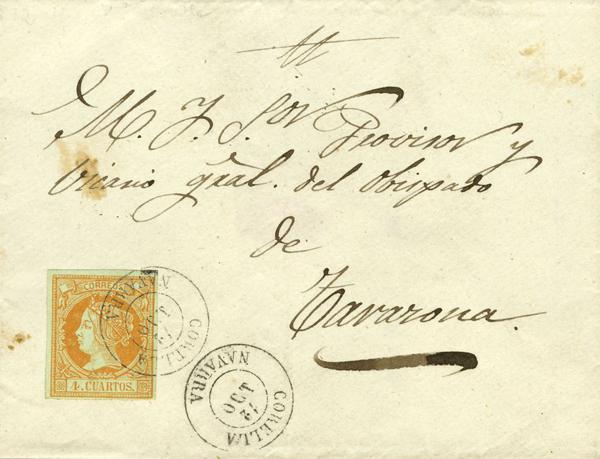 M. Y. S.or Provisor y
Vicario gral. del Obispado
de
Tarazona.
CORREOS
4 CUARTOS.
CORELLA
NAVARRA
OCT
CORELLA
NAVARRA
OCT